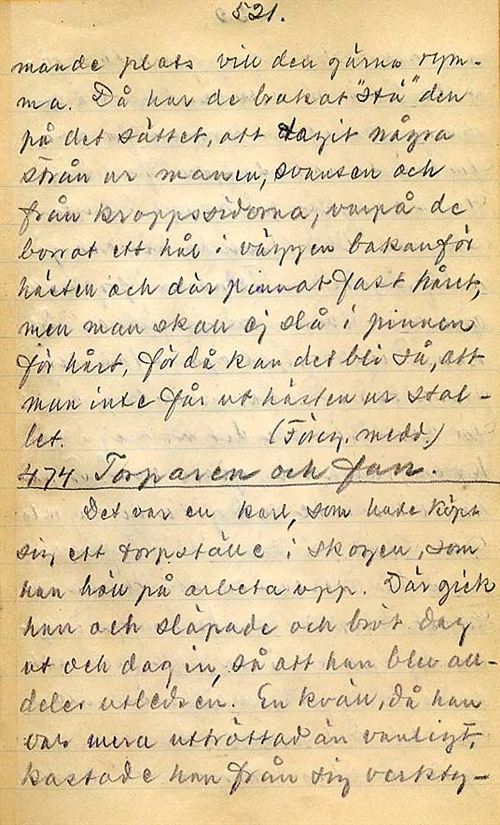 521.
mande plats vill den gärna rym-
ma. Då har de brukat "stå" den
på det sättet, att tagit några
strån ur manen, svansen och
från kroppssidorna, varpå de
borrat ett hål i väggen bakanför
hästen och där pinnat fast håret,
men man skall ej slå i pinnen
för hårt, för då kan det bli så, att
man inte får ut hästen ur stal-
let. (Föreg. medd.)
474 Torparen och fan.
Det var en karl, som hade köpt
sig ett torpställe i skogen, som
han höll på arbeta upp. Där gick
han och släpade och bröt dag
ut och dag in, så att han blev all-
deles utledsen. En kväll, då han
var mera uttröttad än vanligt,
kastade han från sig verkty-